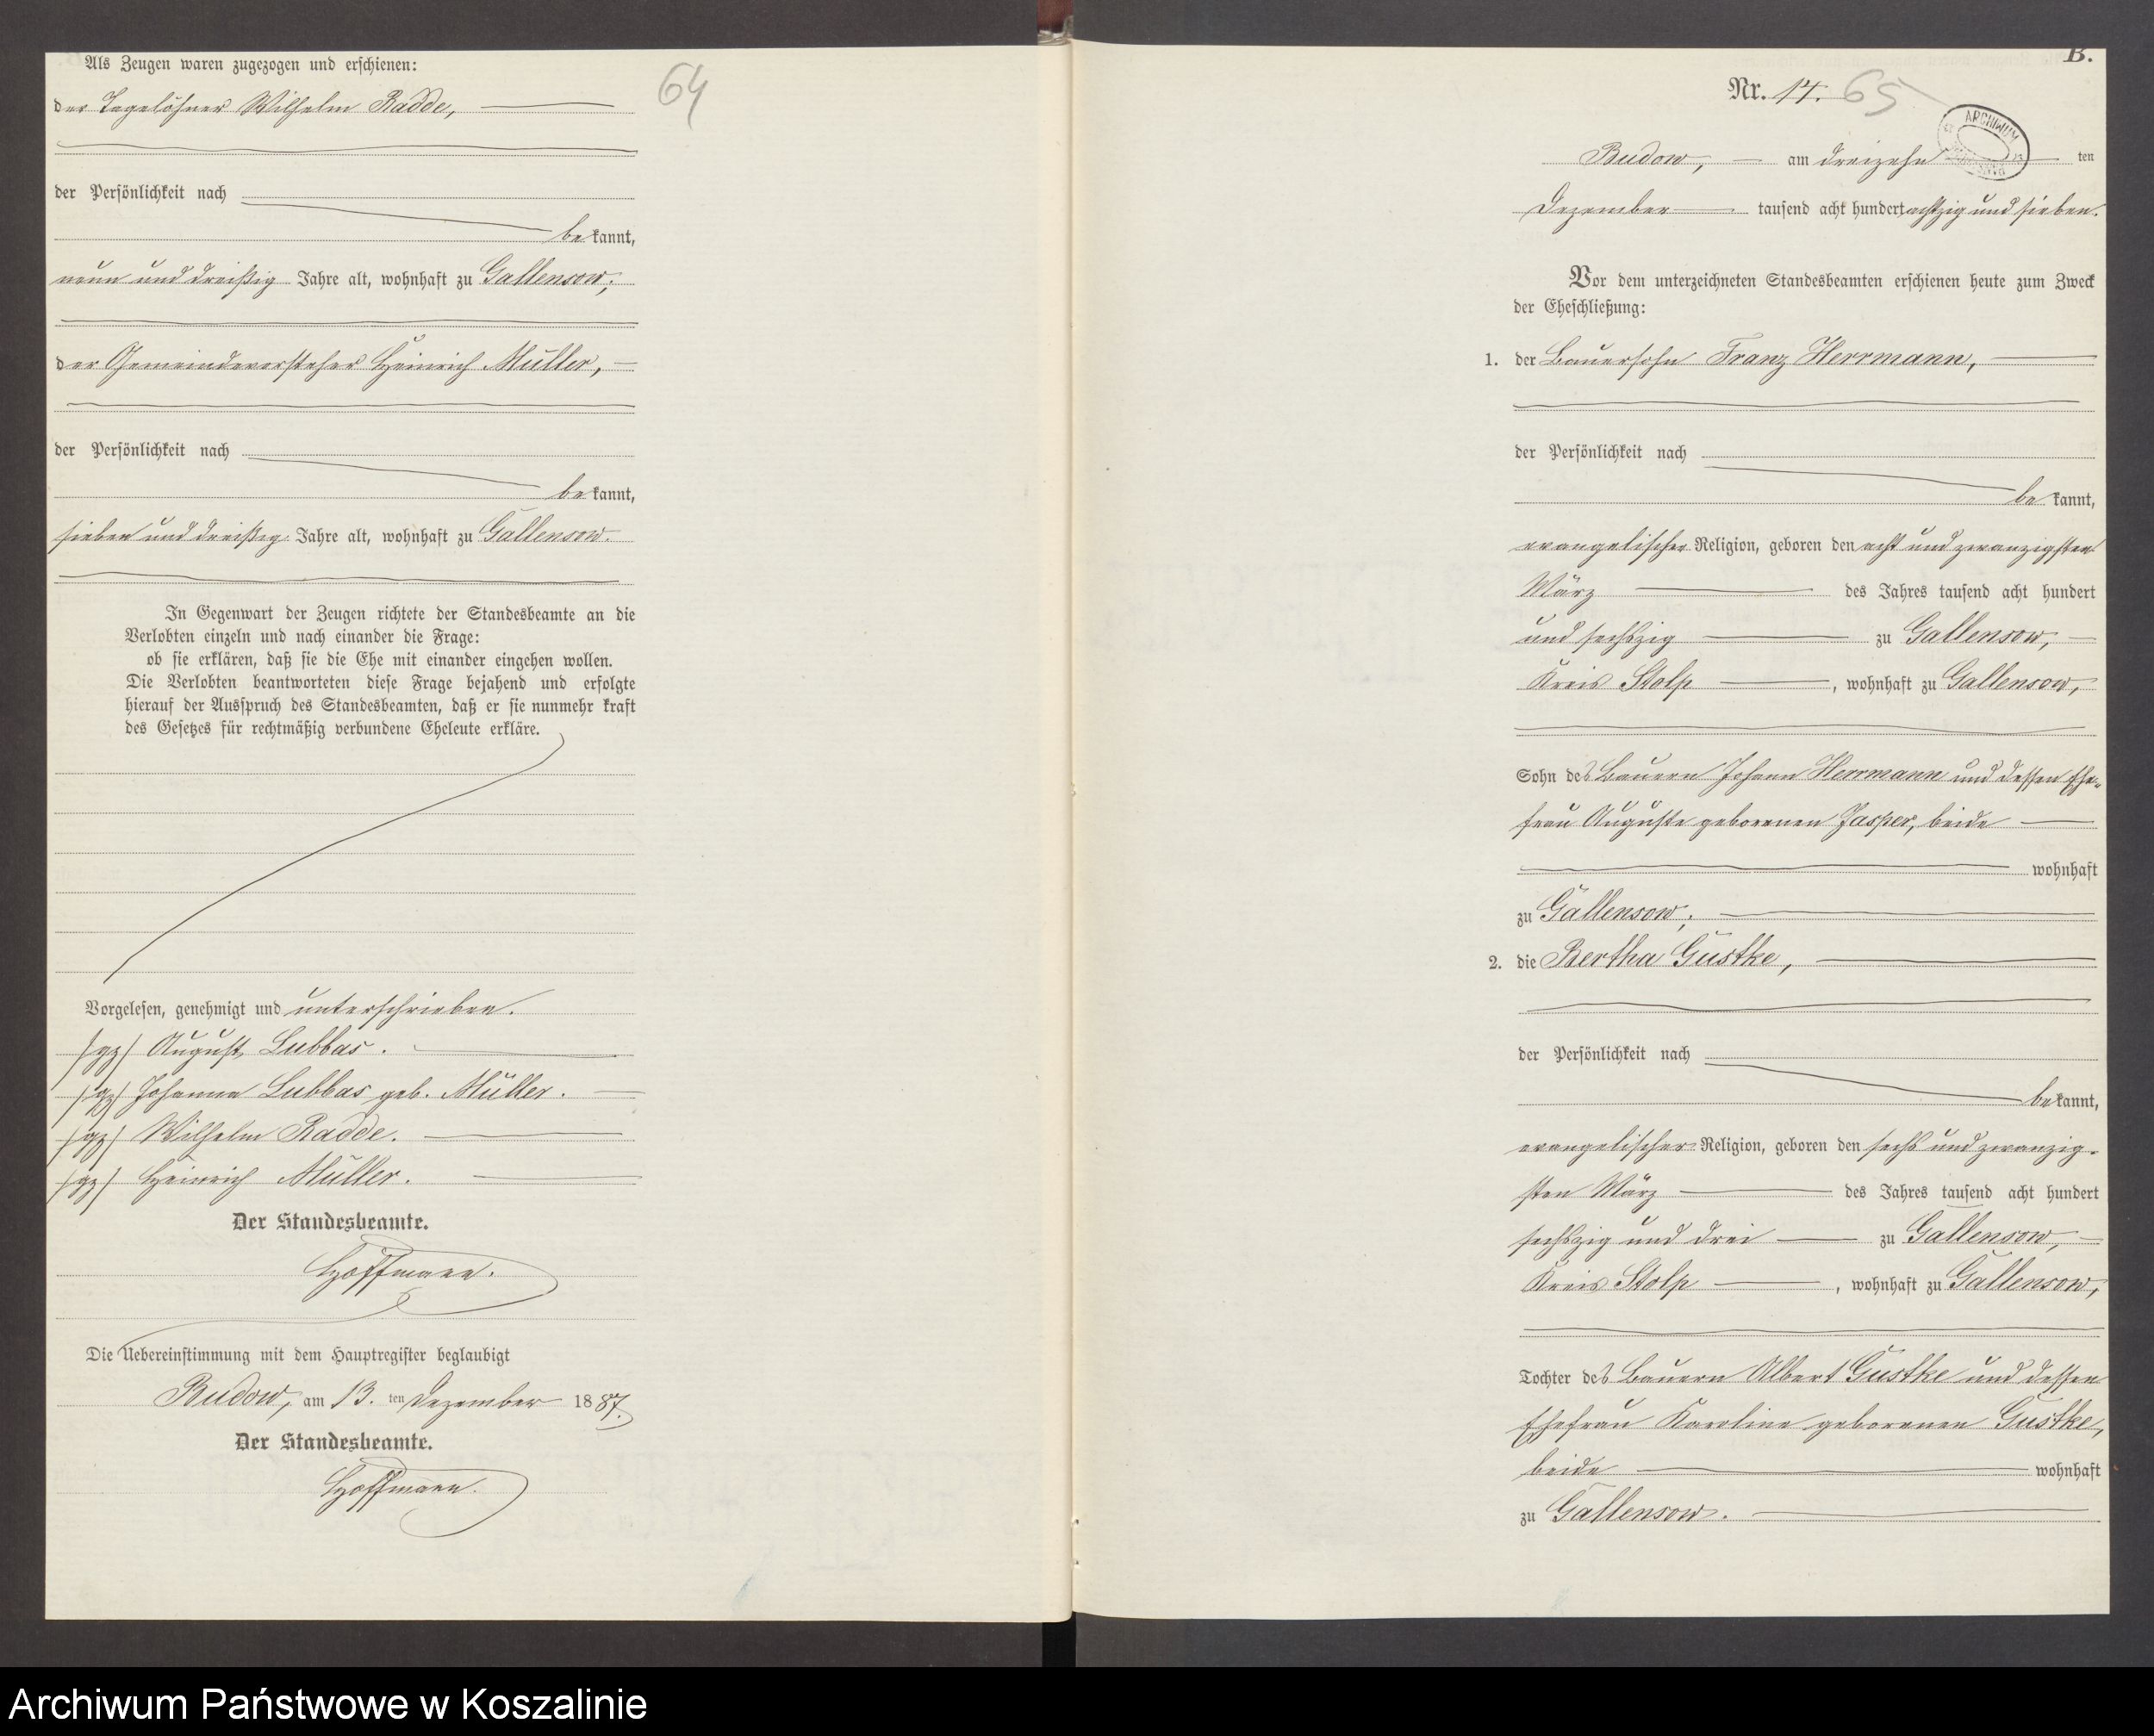 Als Zeugen waren zugezogen und erschienen:
der Tagelöhner Wilhelm Radde,
der Persönlichkeit nach
bekannt,
neun und dreißig Jahre alt, wohnhaft zu Gallensow;
der Gemeindevorsteher Heinrich Müller,
der Persönlichkeit nach
bekannt,
sieben und dreißig Jahre alt, wohnhaft zu Gallensow.
In Gegenwart der Zeugen richtete der Standesbeamte an die
Verlobten einzeln und nach einander die Frage:
ob sie erklären, daß sie die Ehe mit einander eingehen wollen.
Die Verlobten beantworteten diese Frage bejahend und erfolgte
hierauf der Ausspruch des Standesbeamten, daß er sie nunmehr kraft
des Gesetzes für rechtmäßig verbundene Eheleute erkläre.
Vorgelesen, genehmigt und unterschrieben.
/gz/ August Lubbas.
/gz/ Johanna Lubbas geb. Müller.
/gz/ Wilhelm Radde.
/gz/ Heinrich Müller.
Der Standesbeamte.
Hoffmann.
Die Uebereinstimmung mit dem Hauptregister beglaubigt
Budow, am 13. ten Dezember 1887.
Der Standesbeamte.
Hoffmann.
64
B.
Nr. 14. 65
ARCHIWUM
Budow, am dreizehn ten
Dezember tausend acht hundert achtzig und sieben.
Vor dem unterzeichneten Standesbeamten erschienen heute zum Zweck
der Eheschließung:
1. der Bauersohn Franz Herrmann,
der Persönlichkeit nach
bekannt,
evangelischer Religion, geboren den acht und zwanzigsten
März des Jahres tausend acht hundert
und sechszig zu Gallensow,
Kreis Stolp, wohnhaft zu Gallensow,
Sohn des Bauern Johann Herrmann und dessen Ehe-
frau Auguste geborenen Jasper, beide
wohnhaft
zu Gallensow;
2. die Bertha Gustke,
der Persönlichkeit nach
bekannt,
evangelischer Religion, geboren den sechs und zwanzig-
sten März des Jahres tausend acht hundert
sechszig und drei zu Gallensow,
Kreis Stolp, wohnhaft zu Gallensow,
Tochter des Bauern Albert Gustke und dessen
Ehefrau Karoline geborenen Gustke,
beide wohnhaft
zu Gallensow.
Archiwum Państwowe w Koszalinie